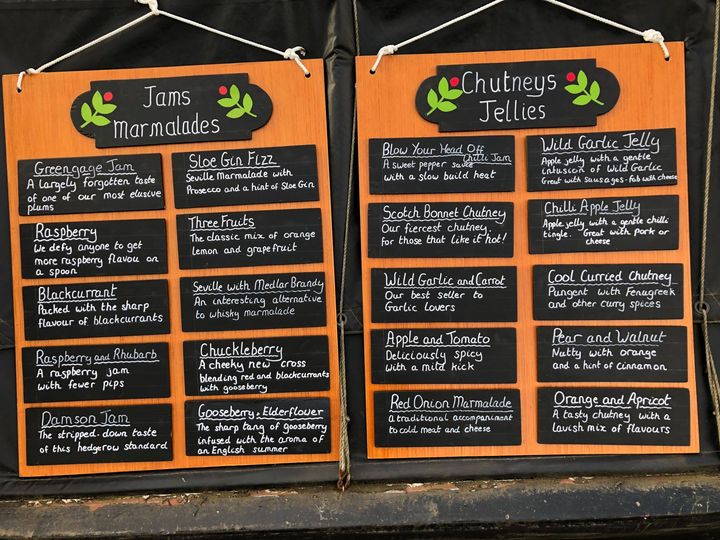 Jams
Marmalades
Greengage Jam
A largely forgotten taste
of one of our most elusive
plums
Raspberry
We defy anyone to get
more raspberry flavou on
a spoon
Blackcurrant
Packed with the sharp
flavour of blackcurrants
Raspberry and Rhubarb
A raspberry jam
with fewer pips
Damson Jam
The stripped-down taste
of this hedgerow standard
Sloe Gin Fizz
Seville Marmalade with
Prosecco and a hint of Sloe Gin
Three Fruits
The classic mix of orange
lemon and grapefruit
Seville with Medlar Brandy
An interesting alternative
to whisky marmalade
Chuckleberry
A cheeky new cross
blending red and blackcurrants
with gooseberry
Gooseberry + Elderflower
The sharp tang of gooseberry
infused with the aroma of
an English summer
Chutneys
Jellies
Blow Your Head Off
Chilli Jam
A sweet pepper
with a slow build heat
Scotch Bonnet Chutney
Our fiercest chutney
for those that like it hot!
Wild Garlic and Carrot
Our best seller to
Garlic lovers
Apple and Tomato
Deliciously spicy
with a mild kick
Red Onion Marmalade
A traditional accompaniment
to cold meat and cheese
Wild Garlic Jelly
Apple jelly with a gentle
infusion of Wild Garlic
Great with sausages - fab with cheese
Chilli Apple Jelly
Apple jelly with a gentle chilli
tingle. Great with pork or
cheese
Cool Curried Chutney
Pungent with Fenugreek
and other curry spices
Pear and Walnut
Nutty with orange
and a hint of cinnamon
Orange and Apricot
A tasty chutney with a
lavish mix of flavours